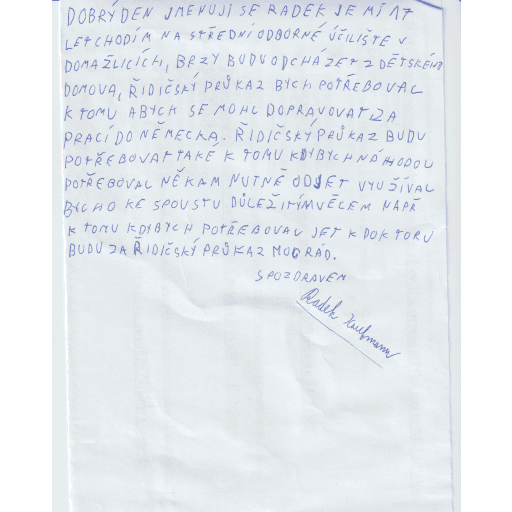 DOBRÝ DEN JMENUJI SE RADEK JE MÍ 17
LET CHODÍM NA STŘEDNÍ ODBORNÉ ÚČILIŠTE V
DOMAŽLICÍCH, BRZY BUDU ODCHÁZET Z DĚTSKÉHO
DOMOVA, ŘIDIČSKÝ PRŮKAZ BYCH POTŘEBOVAL
K TOMU ABYCH SE MOHL DOPRAVOVAT ZA
PRACÍ DO NĚMECKA. ŘIDIČSKÝ PRŮKAZ BUDU
POTŘEBOVAT TAKÉ K TOMU KDYBYCH NÁHODOU
POTŘEBOVAL NĚKAM NUTNĚ ODJET VYUŽÍVAL
BYCHO KE SPOUSTU DŮLEŽITÍM VĚCEM NAPŘ
K TOMU KDYBYCH POTŘEBOVAL JET K DOKTORU
BUDU ZA ŘIDIČSKÝ PRŮKAZ MOC RÁD.
S POZDRAVEM
Radek Kaufmann